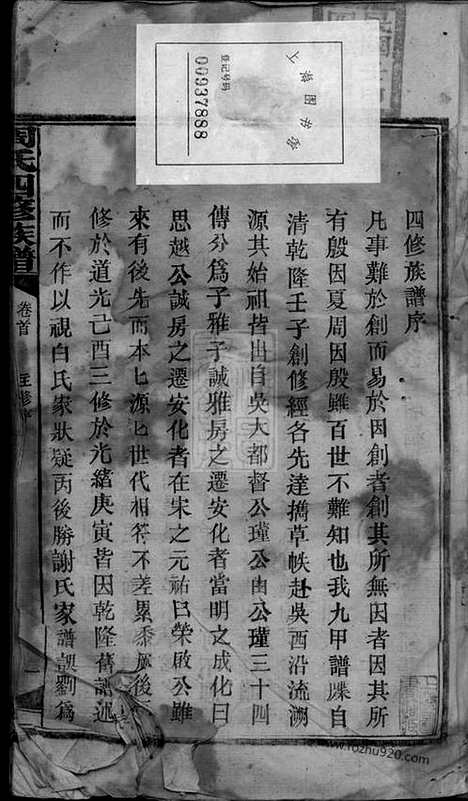 登记号码
00937888
四修族譜序
凡事難於創而易於因創者創其所無因者因其所
有殷因夏周因殷雖百世不難知也我九甲譜牒自
清乾隆壬子創修經各先達擕草帙赴吳西沿流溯
源其始祖皆出自吳大都督公瑾公由公瑾三十四
傳分爲子雅子誠雅房之遷安化者當明之成化曰
思越公誠房之遷安化者在宋之元祐曰榮啟公雖
來有後先而本匕源匕世代相符不差累黍厥後
修於道光己酉三修於光緒庚寅皆因乾隆舊譜述
而不作以視白氏家狀疑丙後勝謝氏家譜誤劉爲
周氏四修族譜
卷首
www.fozhu920.com